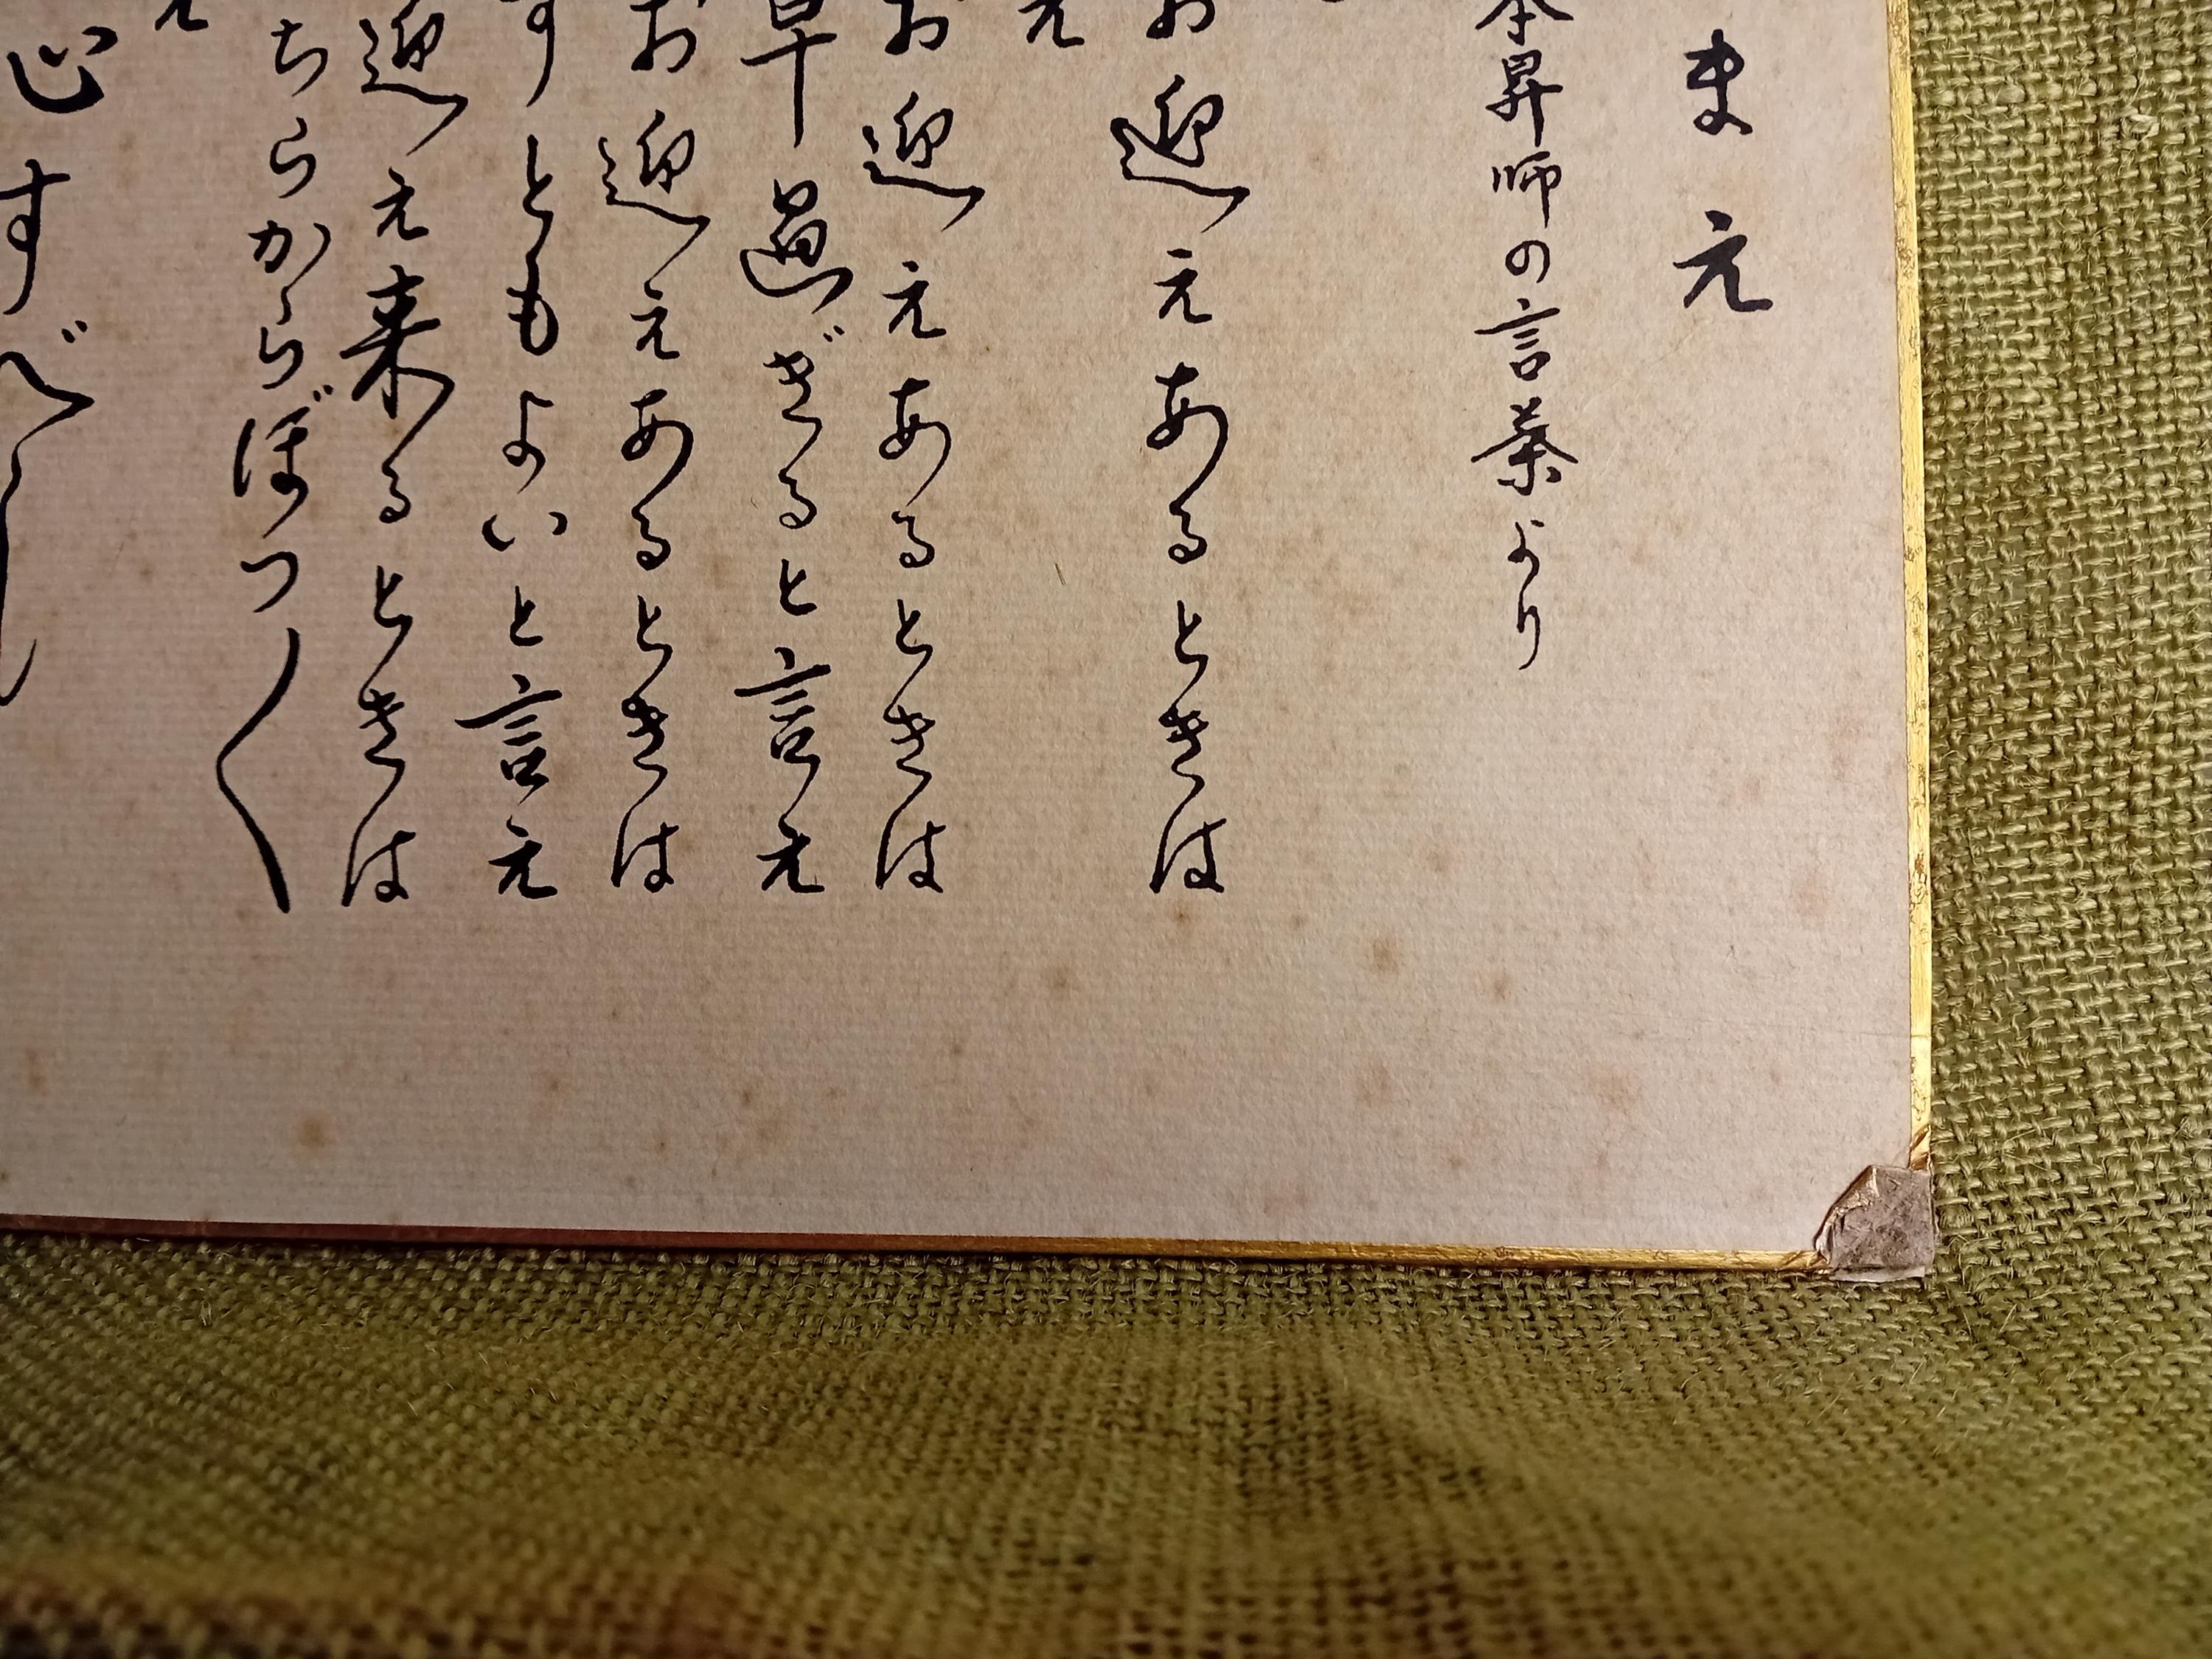 まえ
本昇師の言葉より
お迎えあるときは
え
お迎えあるときは
早過ぎると言え
お迎えあるときは
すともよいと言え
迎え来るときは
ちらからぼつ〱
え
心すべし